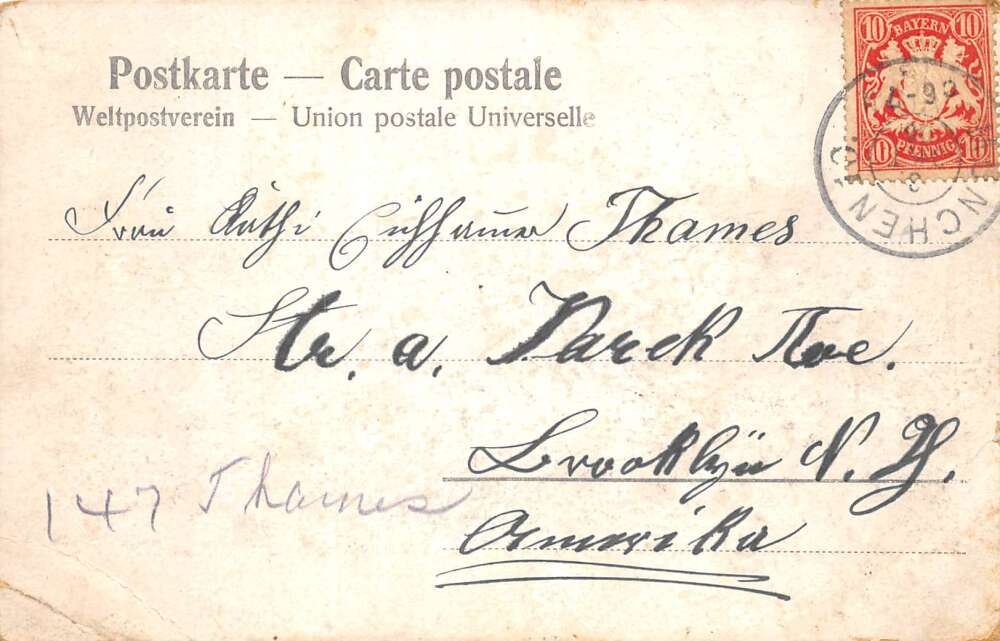 Postkarte — Carte postale
Weltpostverein — Union postale Universelle
10 BAYERN 10
10 PFENNIG 10
Frau Kathi Thames
Str. a. Varek Ave.
Brooklÿn N. Y.
Amerika
147 Thames